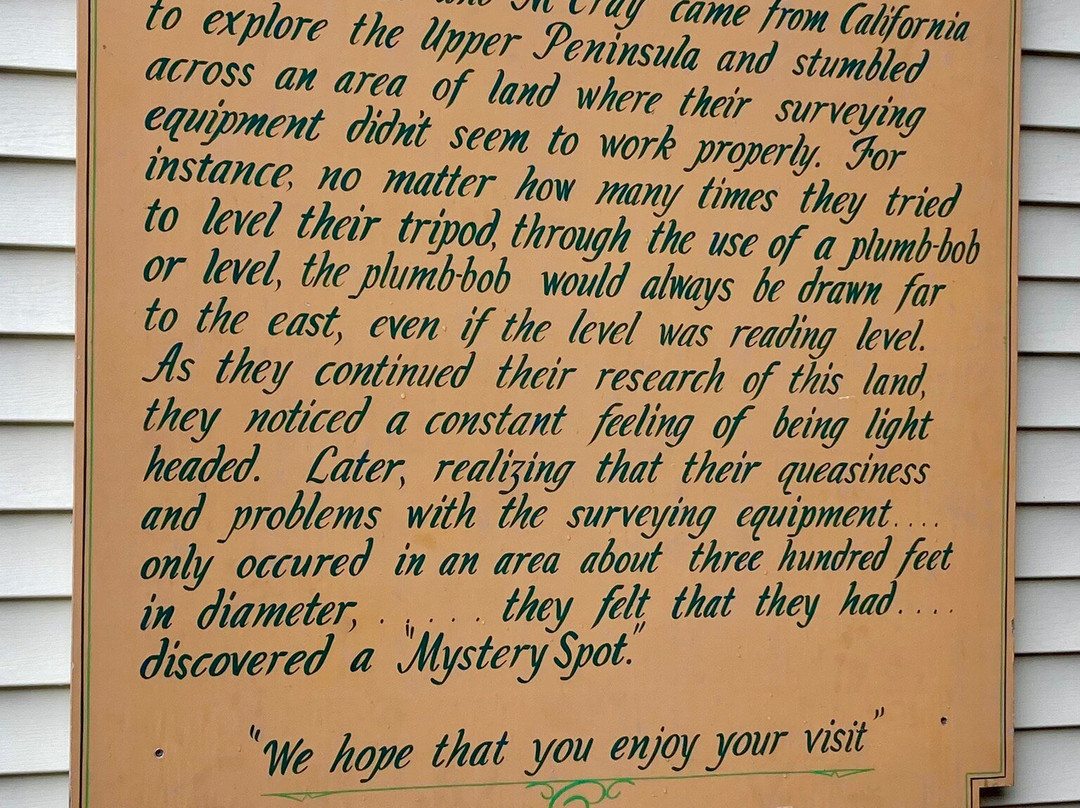 McCray came from California
to explore the Upper Peninsula and stumbled
across an area of land where their surveying
equipment didn't seem to work properly. For
instance, no matter how many times they tried
to level their tripod, through the use of a plumb-bob
or level, the plumb-bob would always be drawn far
to the east, even if the level was reading level.
As they continued their research of this land,
they noticed a constant feeling of being light
headed. Later, realizing that their queasiness
and problems with the surveying equipment....
only occured in an area about three hundred feet
in diameter, . . . . . they felt that they had....
discovered a "Mystery Spot."
"We hope that you enjoy your visit"